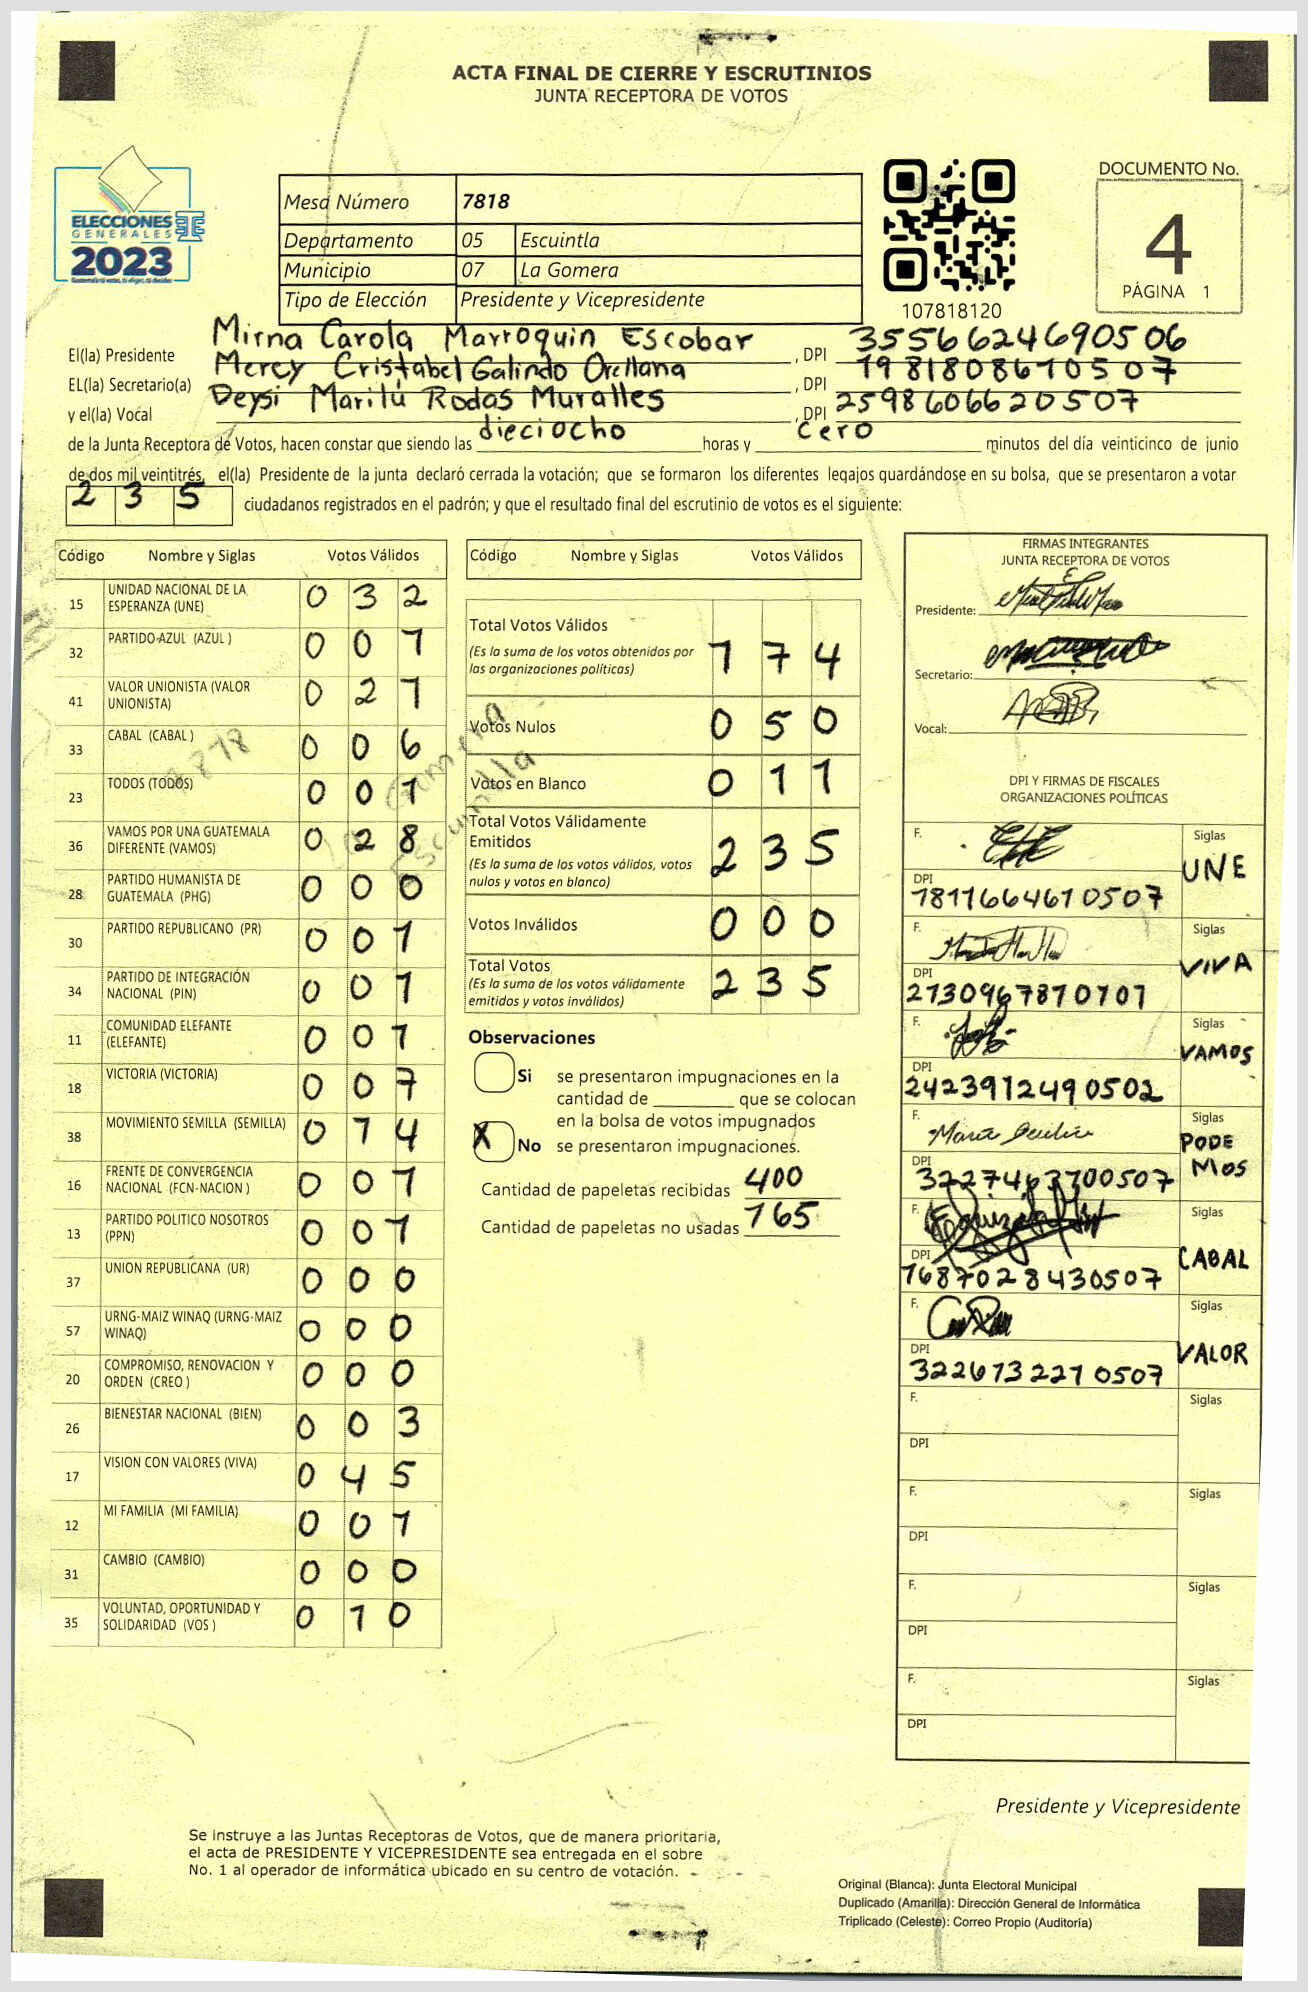 ACTA FINAL DE CIERRE Y ESCRUTINIOS
JUNTA RECEPTORA DE VOTOS
ELECCIONES
GENERALES
2023
Mesa Número 7818
Departamento 05 Escuintla
Municipio 07 La Gomera
Tipo de Elección Presidente y Vicepresidente
107818120
DOCUMENTO No.
4
PÁGINA 1
El(la) Presidente Mirna Carola Marroquin Escobar , DPI 3556624690506
EL(la) Secretario(a) Mercy Cristabel Galindo Orellana , DPI 1981808610507
y el(la) Vocal Deysi Marilú Rodas Muralles , DPI 2598606620507
de la Junta Receptora de Votos, hacen constar que siendo las dieciocho horas y cero minutos del día veinticinco de junio
de dos mil veintitrés, el(la) Presidente de la junta declaró cerrada la votación; que se formaron los diferentes legajos quardándose en su bolsa, que se presentaron a votar
235 ciudadanos registrados en el padrón; y que el resultado final del escrutinio de votos es el siguiente:
Código Nombre y Siglas Votos Válidos
15 UNIDAD NACIONAL DE LA ESPERANZA (UNE) 032
32 PARTIDO AZUL (AZUL ) 001
41 VALOR UNIONISTA (VALOR UNIONISTA) 021
33 CABAL (CABAL ) 006
23 TODOS (TODOS) 001
36 VAMOS POR UNA GUATEMALA DIFERENTE (VAMOS) 028
28 PARTIDO HUMANISTA DE GUATEMALA (PHG) 000
30 PARTIDO REPUBLICANO (PR) 001
34 PARTIDO DE INTEGRACIÓN NACIONAL (PIN) 001
11 COMUNIDAD ELEFANTE (ELEFANTE) 001
18 VICTORIA (VICTORIA) 007
38 MOVIMIENTO SEMILLA (SEMILLA) 014
16 FRENTE DE CONVERGENCIA NACIONAL (FCN-NACION ) 001
13 PARTIDO POLITICO NOSOTROS (PPN) 001
37 UNION REPUBLICANA (UR) 000
57 URNG-MAIZ WINAQ (URNG-MAIZ WINAQ) 000
20 COMPROMISO, RENOVACION Y ORDEN (CREO ) 000
26 BIENESTAR NACIONAL (BIEN) 003
17 VISION CON VALORES (VIVA) 045
12 MI FAMILIA (MI FAMILIA) 001
31 CAMBIO (CAMBIO) 000
35 VOLUNTAD, OPORTUNIDAD Y SOLIDARIDAD (VOS ) 010
7818
La Gomera
Escuintla
Código Nombre y Siglas Votos Válidos
Total Votos Válidos 174
(Es la suma de los votos obtenidos por
las organizaciones políticas)
Votos Nulos 050
Votos en Blanco 011
Total Votos Válidamente
Emitidos 235
(Es la suma de los votos válidos, votos
nulos y votos en blanco)
Votos Inválidos 000
Total Votos 235
(Es la suma de los votos válidamente
emitidos y votos inválidos)
Observaciones
Si se presentaron impugnaciones en la
cantidad de ________ que se colocan
en la bolsa de votos impugnados
X No se presentaron impugnaciones.
Cantidad de papeletas recibidas 400
Cantidad de papeletas no usadas 165
FIRMAS INTEGRANTES
JUNTA RECEPTORA DE VOTOS
Presidente:
Secretario:
Vocal:
DPI Y FIRMAS DE FISCALES
ORGANIZACIONES POLÍTICAS
F. Siglas UNE
DPI 1811664610507
F. Siglas VIVA
DPI 2130967870101
F. Siglas VAMOS
DPI 2423912490502
F. Siglas PODEMOS
DPI 3227463700507
F. Siglas CABAL
DPI 1687028430507
F. Siglas VALOR
DPI 3226732210507
F. Siglas
DPI
F. Siglas
DPI
F. Siglas
DPI
F. Siglas
DPI
Presidente y Vicepresidente
Se instruye a las Juntas Receptoras de Votos, que de manera prioritaria,
el acta de PRESIDENTE Y VICEPRESIDENTE sea entregada en el sobre
No. 1 al operador de informática ubicado en su centro de votación.
Original (Blanca): Junta Electoral Municipal
Duplicado (Amarilla): Dirección General de Informática
Triplicado (Celeste): Correo Propio (Auditoría)